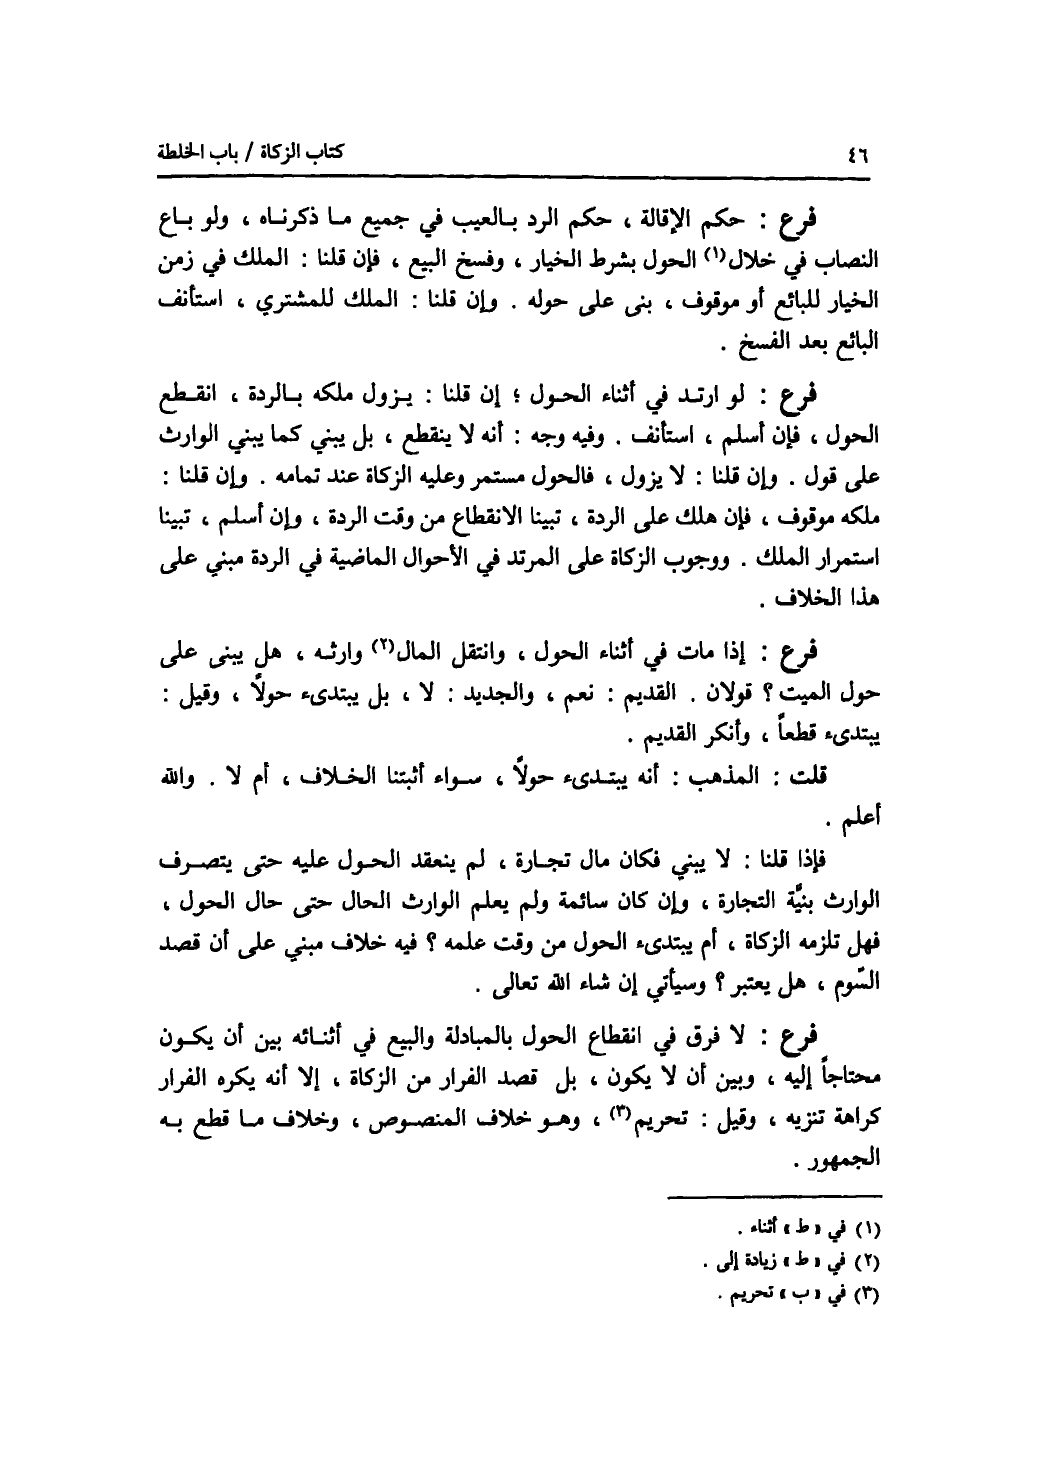 ٤٦
كتاب الزكاة / باب الخلطة
فرع : حكم الإقالة ، حكم الرد بالعيب في جميع ما ذكرناه ، ولو باع
النصاب في خلال(١) الحول بشرط الخيار ، وفسخ البيع ، فإن قلنا : الملك في زمن
الخيار للبائع أو موقوف ، بنى على حوله . وإن قلنا : الملك للمشتري ، استأنف
البائع بعد الفسخ .
فرع : لو ارتد في أثناء الحول ؛ إن قلنا : يزول ملكه بالردة ، انقطع
الحول ، فإن أسلم ، استأنف . وفيه وجه : أنه لا ينقطع ، بل يبني كما يبني الوارث
على قول . وإن قلنا : لا يزول ، فالحول مستمر وعليه الزكاة عند تمامه . وإن قلنا :
ملكه موقوف ، فإن هلك على الردة ، تبينا الانقطاع من وقت الردة ، وإن أسلم ، تبينا
استمرار الملك . ووجوب الزكاة على المرتد في الأحوال الماضية في الردة مبني على
هذا الخلاف .
فرع : إذا مات في أثناء الحول ، وانتقل المال(٢) وارثه ، هل يبنى على
حول الميت ؟ قولان . القديم : نعم ، والجديد : لا ، بل يبتدىء حولاً ، وقيل :
يبتدىء قطعاً ، وأنكر القديم .
قلت : المذهب : أنه يبتدىء حولاً ، سواء أثبتنا الخلاف ، أم لا . والله
أعلم .
فإذا قلنا : لا يبني فكان مال تجارة ، لم ينعقد الحول عليه حتى يتصرف
الوارث بنيَّة التجارة ، وإن كان سائمة ولم يعلم الوارث الحال حتى حال الحول ،
فهل تلزمه الزكاة ، أم يبتدىء الحول من وقت علمه ؟ فيه خلاف مبني على أن قصد
السَّوم ، هل يعتبر ؟ وسيأتي إن شاء الله تعالى .
فرع : لا فرق في انقطاع الحول بالمبادلة والبيع في أثنائه بين أن يكون
محتاجاً إليه ، وبين أن لا يكون ، بل قصد الفرار من الزكاة ، إلا أنه يكره الفرار
كراهة تنزيه ، وقيل : تحريم(٣) ، وهو خلاف المنصوص ، وخلاف ما قطع به
الجمهور .
(١) في « ط » أثناء .
(٢) في « ط » زيادة إلى .
(٣) في « ب » تحريم .